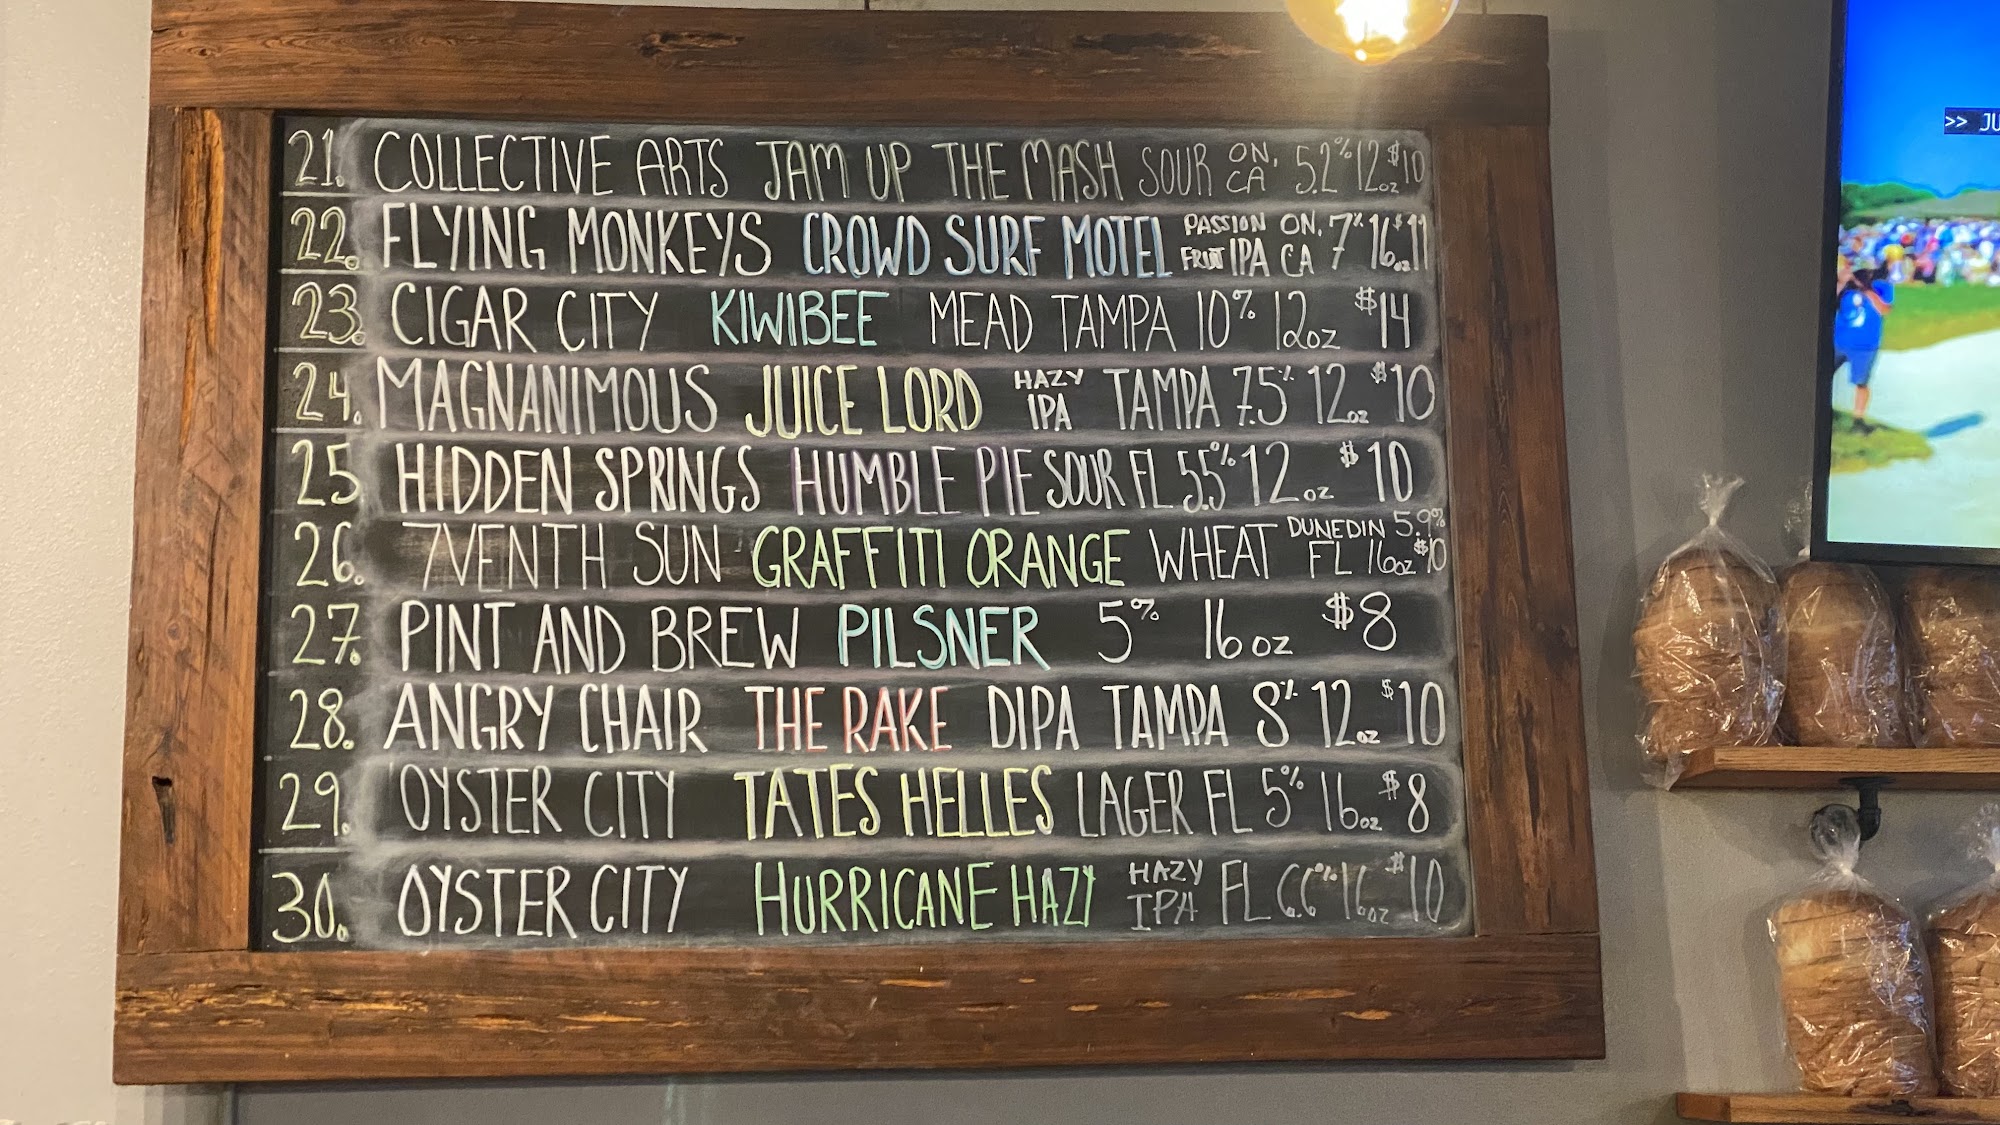 21. COLLECTIVE ARTS JAM UP THE MASH SOUR ON, CA 5.2% 12oz $10
22. FLYING MONKEYS CROWD SURF MOTEL PASSION FRUIT IPA ON, CA 7% 16oz $11
23. CIGAR CITY KIWIBEE MEAD TAMPA 10% 12oz $14
24. MAGNANIMOUS JUICE LORD HAZY IPA TAMPA 7.5% 12oz $10
25. HIDDEN SPRINGS HUMBLE PIE SOUR FL 5.5% 12oz $10
26. 7VENTH SUN GRAFFITI ORANGE WHEAT DUNEDIN FL 5.9% 16oz $10
27. PINT AND BREW PILSNER 5% 16oz $8
28. ANGRY CHAIR THE RAKE DIPA TAMPA 8% 12oz $10
29. OYSTER CITY TATES HELLES LAGER FL 5% 16oz $8
30. OYSTER CITY HURRICANE HAZY HAZY IPA FL 6.6% 16oz $10
>> JU